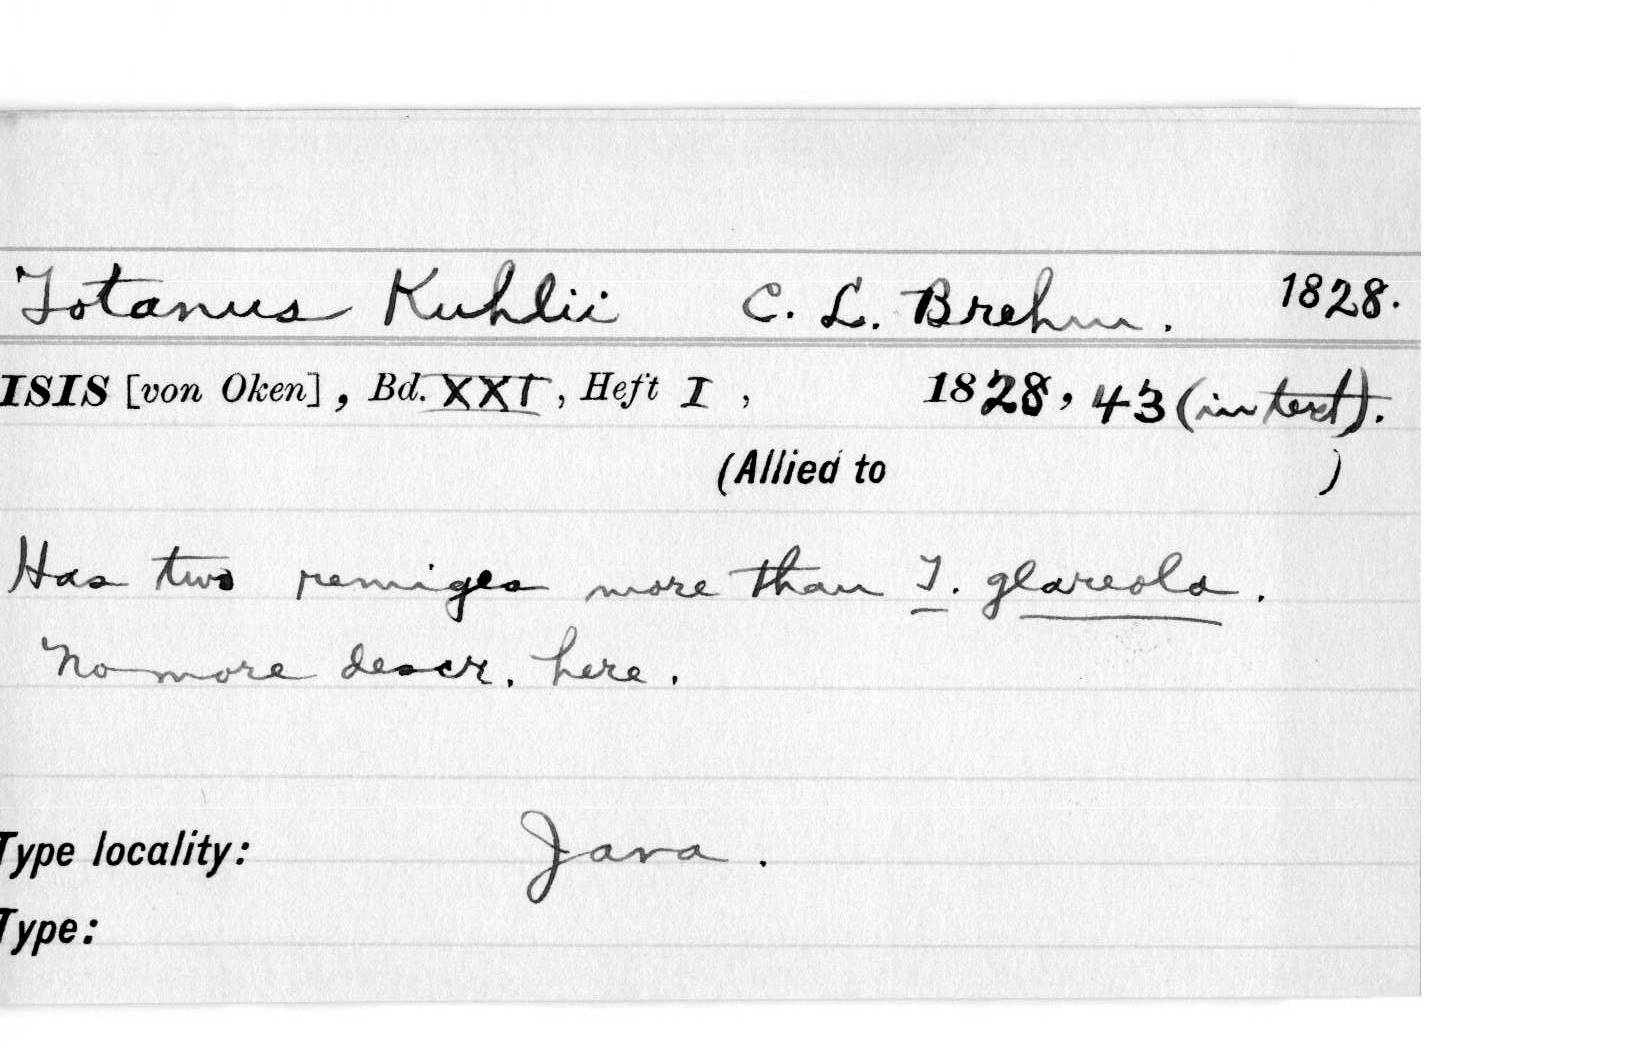 Totanus Kuhlii C. L. Brehm. 1828.
ISIS [von Oken], Bd. XXI, Heft I, 1828, 43 (in text).
(Allied to )
Has two remiges more than T. glareola.
No more descr. here.
Type locality: Java.
Type: